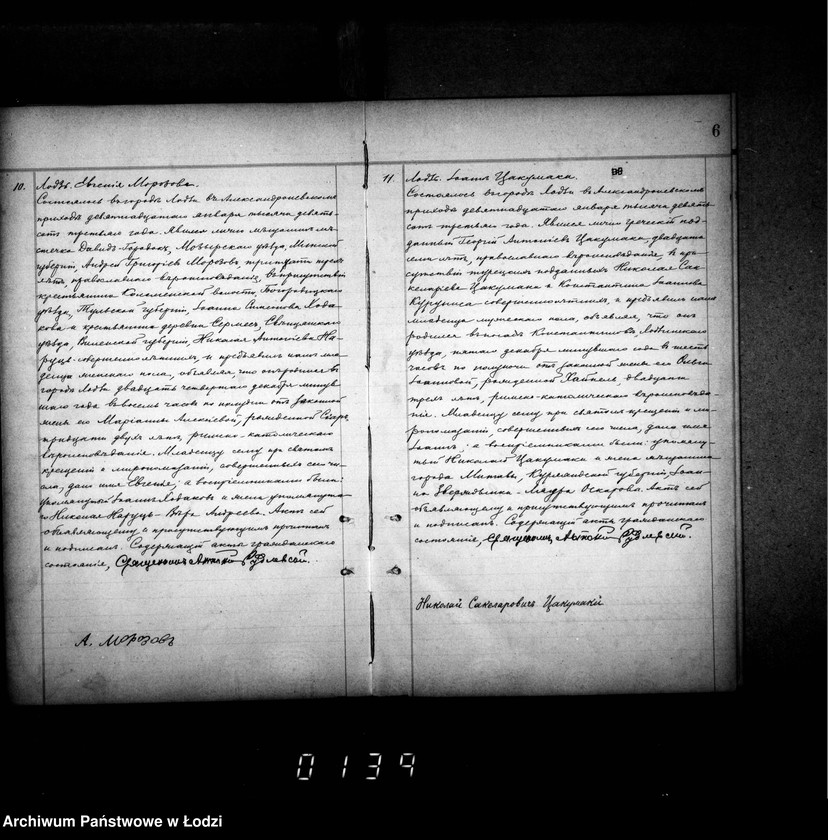 6
10.
Лодзь. Евгенія Морозова.
Состоялось въ городѣ Лодзи въ Александроневскомъ
приходѣ девятнадцатаго января тысяча девять-
сотъ третьяго года. Явился лично мѣщанинъ мѣ-
стечка Давидъ-Городокъ, Мозырскаго уѣзда, Минской
губерніи, Андрей Григорьевъ Морозовъ тридцати
лѣтъ, православнаго вѣроисповѣданія, въ присутствіи
крестьянина волости Богородицкаго
уѣзда, Тульской губерніи, Іоанна Симеонова Хода-
кова и крестьянина деревни Свенцянскаго
уѣзда, Виленской губерніи, Николая Антоніева На-
руцъ совершеннолѣтнихъ, и предъявилъ намъ мла-
денца женскаго пола, объявляя, что оно родилось въ
городѣ Лодзи двадцать четвертаго декабря минув-
шаго года въ восемь часовъ по полудни отъ законной
жены его Маріанны Алексѣевой, рожденной
тридцати двухъ лѣтъ, римско-католическаго
вѣроисповѣданія. Младенцу сему при святомъ
крещеніи и миропомазаніи, совершенныхъ сего чи-
сла, дано имя Евгенія, а воспріемниками были:
упомянутый Іоаннъ Ходаковъ и жена упомянута-
го Николая Наруцъ Вѣра Андреева. Актъ сей
объявляющему и присутствующимъ прочитанъ
и подписанъ. Содержащій акты гражданскаго
состоянія, Священникъ Антоній Рудлевскій.
А. Морозовъ
11.
Лодзь. Іоаннъ Цакумаки.
Состоялось въ городѣ Лодзи въ Александроневскомъ
приходѣ девятнадцатаго января тысяча девять-
сотъ третьяго года. Явился лично греческій под-
данный Георгій Антоніевъ Цакумаки двадцати
семи лѣтъ, православнаго вѣроисповѣданія, въ при-
сутствіи турецкихъ подданныхъ Николая Сак-
еларіева Цакумаки и Константина Іоаннова
Куруписа совершеннолѣтнихъ, и предъявилъ намъ
младенца мужескаго пола, объявляя, что онъ
родился въ посадѣ Константиновъ, Лодзинскаго
уѣзда, пятаго декабря минувшаго года въ шесть
часовъ по полуночи отъ законной жены его Ольги
Іоанновой, рожденной двадцати
трехъ лѣтъ, римско-католическаго вѣроисповѣда-
нія. Младенцу сему при святомъ крещеніи и ми-
ропомазаніи совершенныхъ сего числа, дано имя
Іоаннъ, а воспріемниками были: упомяну-
тый Николай Цакумаки и жена мѣщанина
города Митавы, Курляндской губерніи, Іоан-
на Оскарова. Актъ сей
объявляющему и присутствующимъ прочитанъ
и подписанъ. Содержащій акты гражданскаго
состоянія, Священникъ Антоній Рудлевскій.
Николай Сакеларовичъ Цакумаки
0139
Archiwum Państwowe w Łodzi